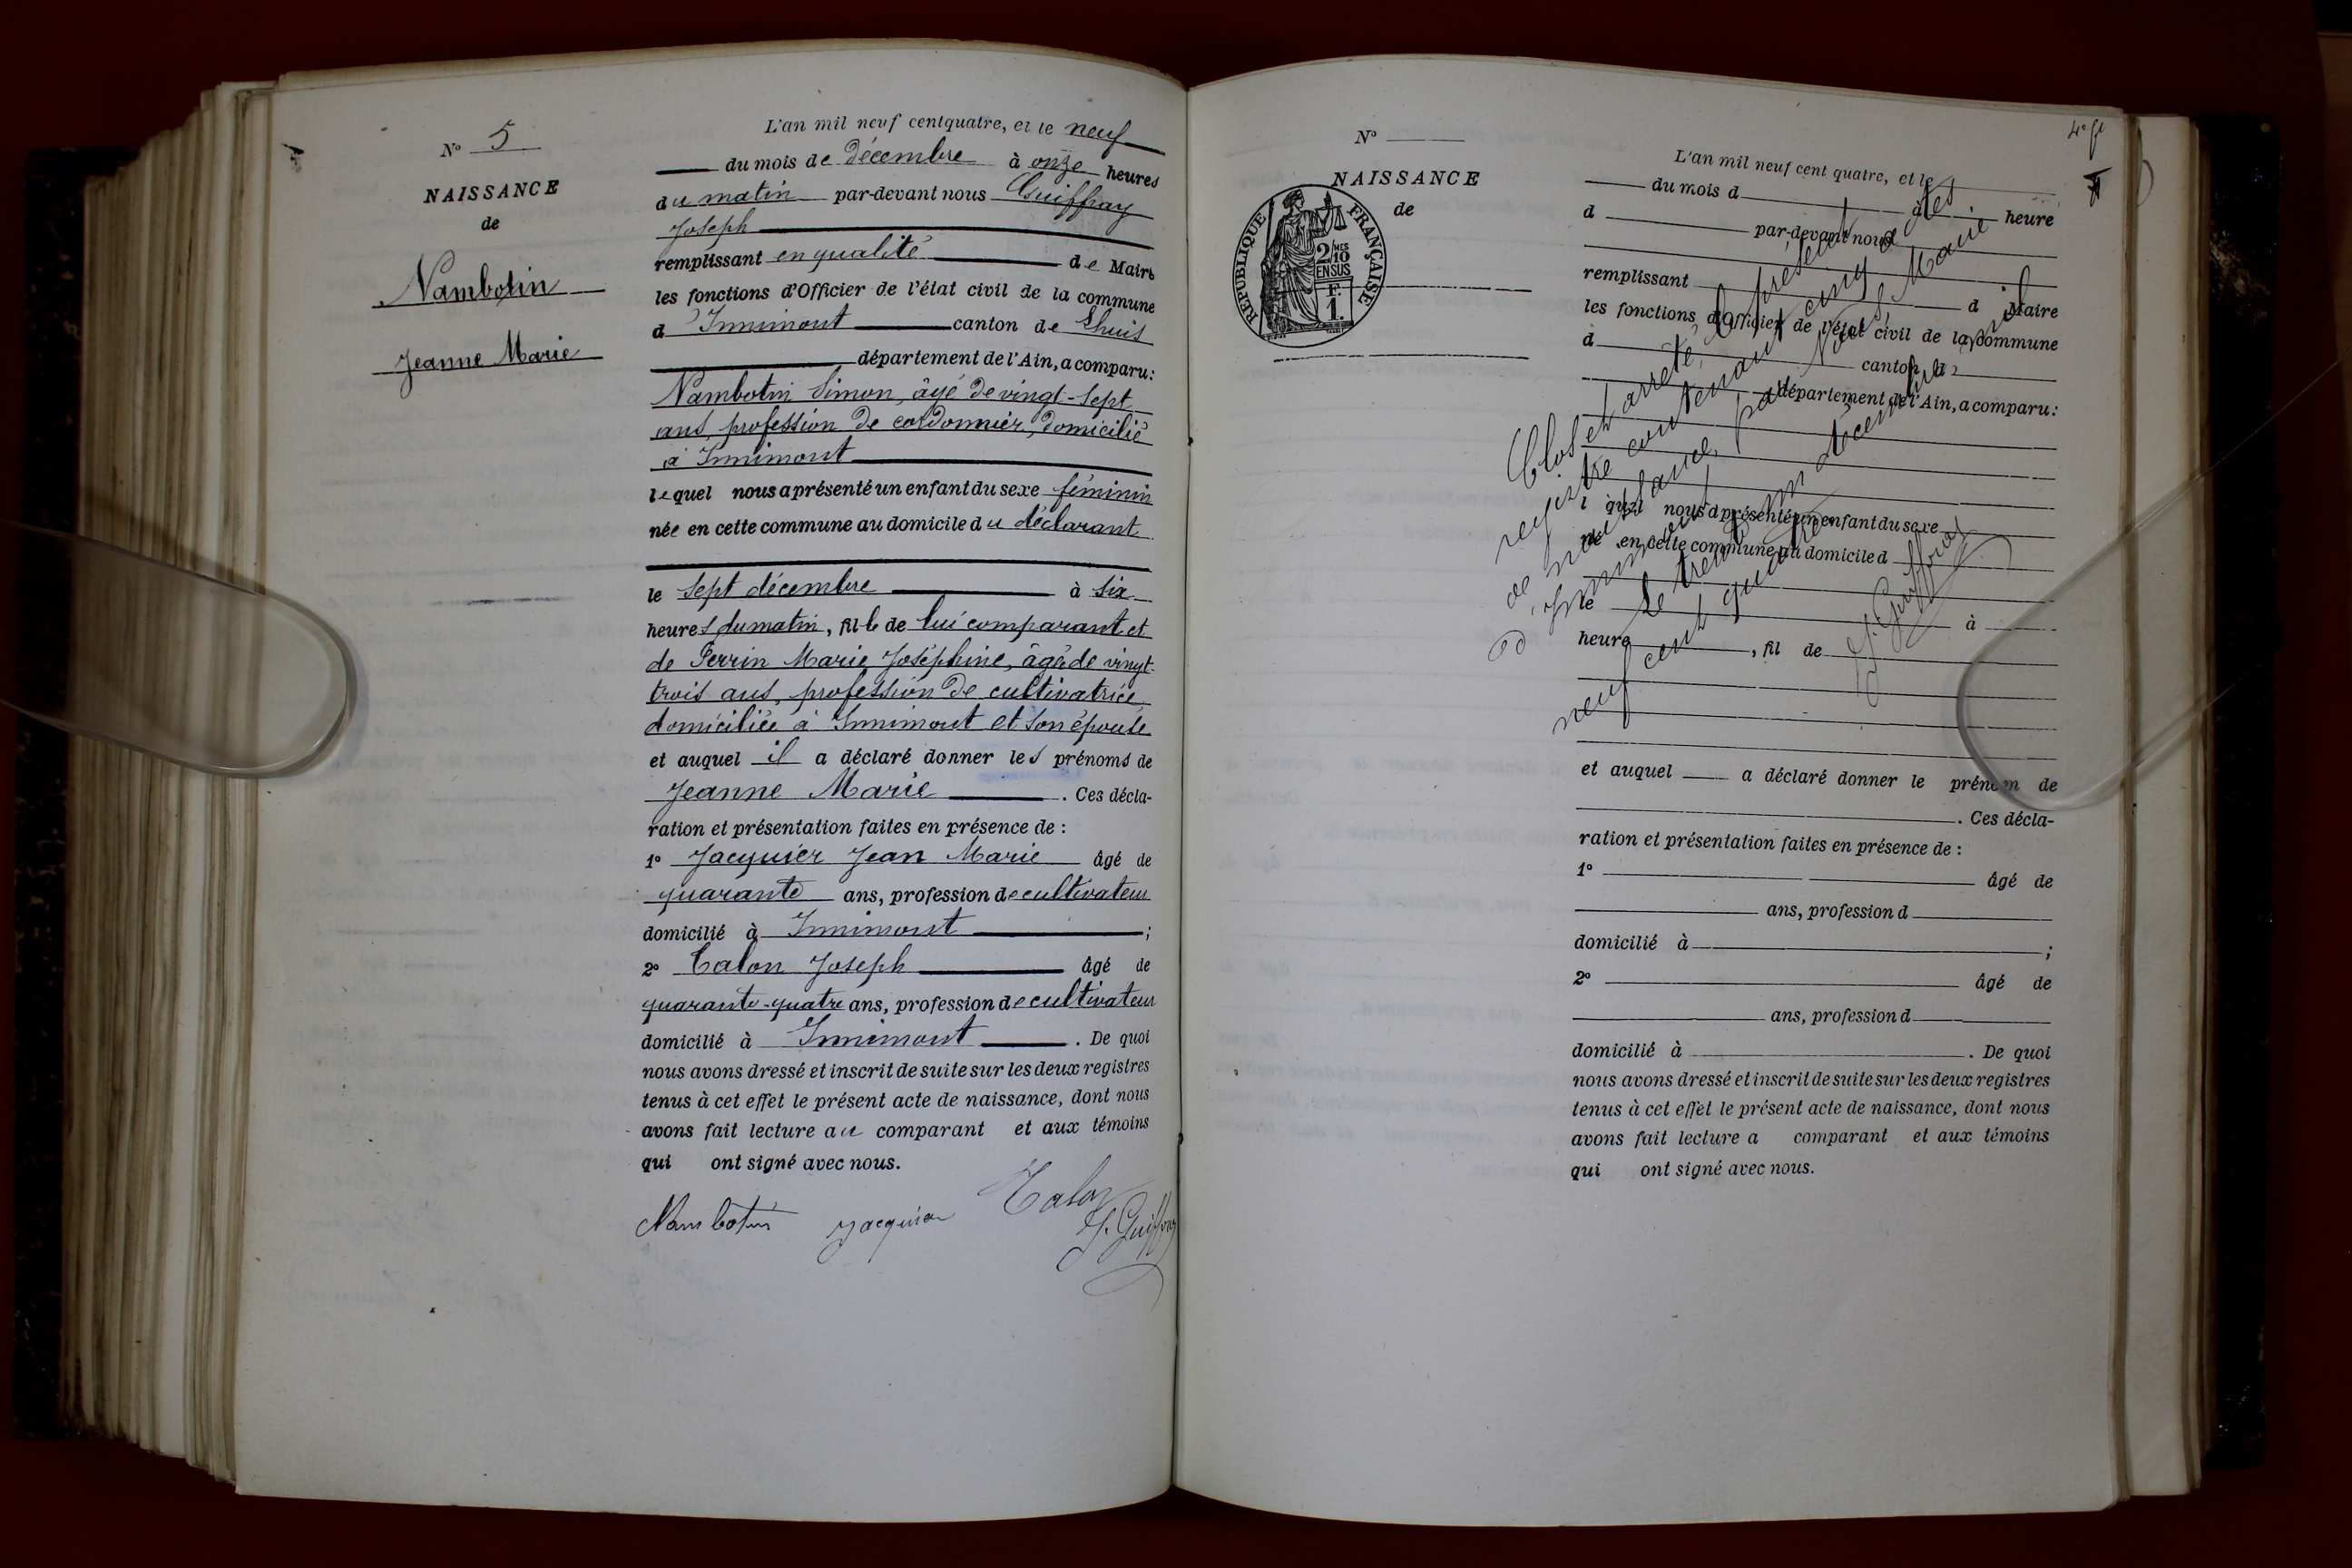 N° 5
NAISSANCE
de
Nambotin
Jeanne Marie
L'an mil neuf cent quatre, et le neuf
du mois de décembre à onze heures
du matin par-devant nous Guiffray
Joseph
remplissant en qualité de Maire
les fonctions d'Officier de l'état civil de la commune
d'Innimont canton de Lhuis
département de l'Ain, a comparu:
Nambotin Simon, âgé de vingt-sept
ans, profession de cordonnier, domicilié
à Innimont
lequel nous a présenté un enfant du sexe féminin
née en cette commune au domicile du déclarant
le sept décembre à six
heures du matin, fille de lui comparant et
de Perrin Marie Joséphine, âgée de vingt-
trois ans, profession de cultivatrice
domiciliée à Innimont et son épouse
et auquel il a déclaré donner les prénoms de
Jeanne Marie . Ces décla-
ration et présentation faites en présence de :
1° Jacquier Jean Marie âgé de
quarante ans, profession de cultivateur
domicilié à Innimont ;
2° Talon Joseph âgé de
quarante-quatre ans, profession de cultivateur
domicilié à Innimont . De quoi
nous avons dressé et inscrit de suite sur les deux registres
tenus à cet effet le présent acte de naissance, dont nous
avons fait lecture au comparant et aux témoins
qui ont signé avec nous.
Nambotin Jacquier Talon
J. Guiffray
N°
NAISSANCE
de
RÉPUBLIQUE FRANÇAISE
2/10 MES
EN SUS
F.
1.
L'an mil neuf cent quatre, et le
du mois d à heure
d par-devant nous
remplissant d Maire
les fonctions d'Officier de l'état civil de la commune
d canton d
département de l'Ain, a comparu:
l quel nous a présenté un enfant du sexe
né en cette commune au domicile d
le à
heure , fil de
et auquel a déclaré donner le prénom de
. Ces décla-
ration et présentation faites en présence de :
1° âgé de
ans, profession d
domicilié à ;
2° âgé de
ans, profession d
domicilié à . De quoi
nous avons dressé et inscrit de suite sur les deux registres
tenus à cet effet le présent acte de naissance, dont nous
avons fait lecture a comparant et aux témoins
qui ont signé avec nous.
Clos et arrêté, le présent
registre contenant cinq actes
de naissance, par Nous, Maire
d'Innimont
Le trente un décembre mil
neuf cent quatre
J. Guiffray